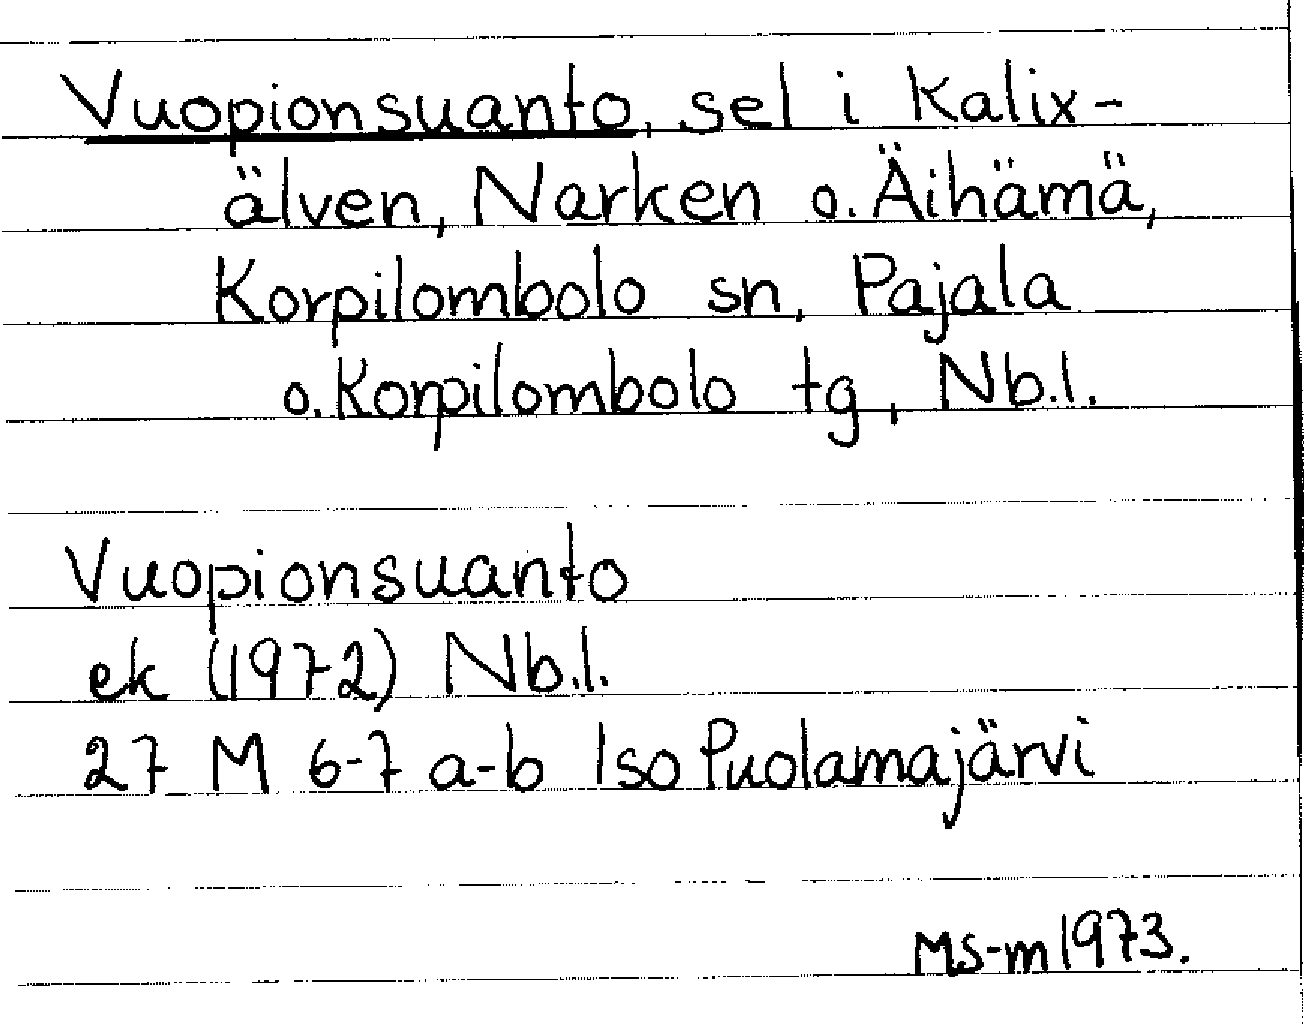 Vuopionsuanto, sel i Kalix-
älven, Narken o. Äihämä,
Korpilombolo sn, Pajala
o. Korpilombolo tg, Nb.l.
Vuopionsuanto
ek (1972) Nb.l.
27 M 6-7 a-b Iso Puolamajärvi
MS-m 1973.